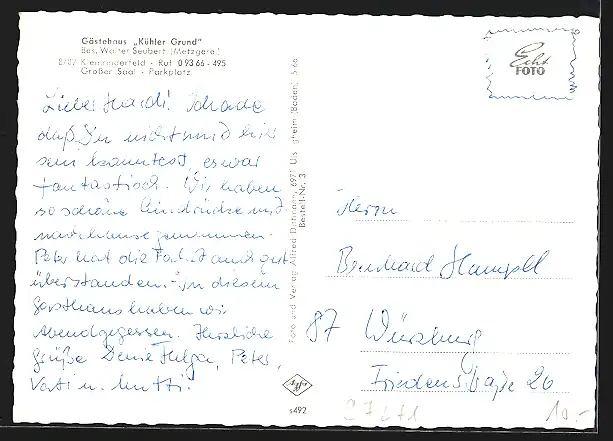 Gästehaus „Kühler Grund"
Bes. Walter Seubert (Metzgerei)
8707 Kleinrinderfeld - Ruf 0 93 66 - 495
Großer Saal - Parkplatz
Echt
FOTO
Lieber Hardi! Schade
daß Du nicht mit hier
sein konntest, es war
fantastisch. Wir haben
so schöne Eindrücke mit
nach hause genommen.
Peter hat die Fahrt auch gut
überstanden. In diesem
Gasthaus haben wir
Abendgegessen. Herzliche
Grüße Deine Helga, Peter,
Vati u. Mutti!
Foto und Verlag Alfred 6971 (Baden) 5 66
Bestell-Nr. 3
Herrn
Bernhard Hampel
87 Würzburg
Friedenstraße 26
Agfa
s492
27671
10.-